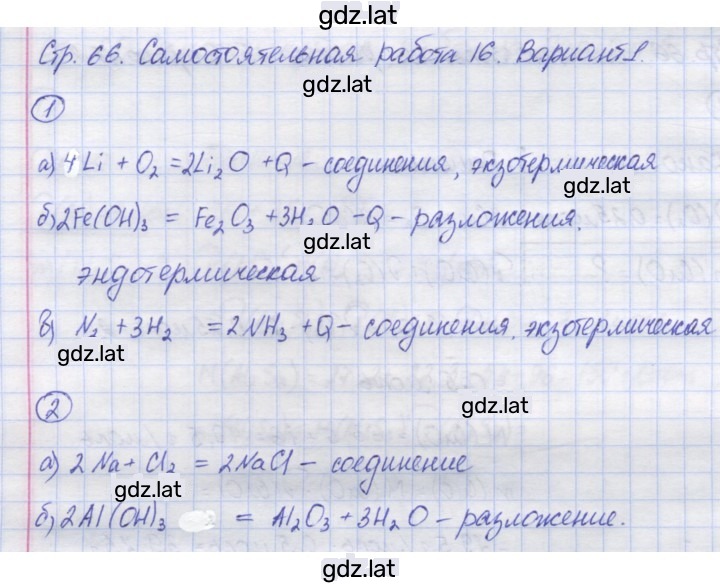 gdz.lat
Стр. 66. Самостоятельная работа 16. Вариант 1.
gdz.lat
1
а) 4Li + O₂ = 2Li₂O + Q – соединения, экзотермическая
gdz.lat
б) 2Fe(OH)₃ = Fe₂O₃ + 3H₂O – Q – разложения.
gdz.lat
эндотермическая
в) N₂ + 3H₂ = 2NH₃ + Q – соединения, экзотермическая
gdz.lat
2
gdz.lat
а) 2Na + Cl₂ = 2NaCl – соединение
gdz.lat
б) 2Al(OH)₃ = Al₂O₃ + 3H₂O – разложение.
gdz.lat